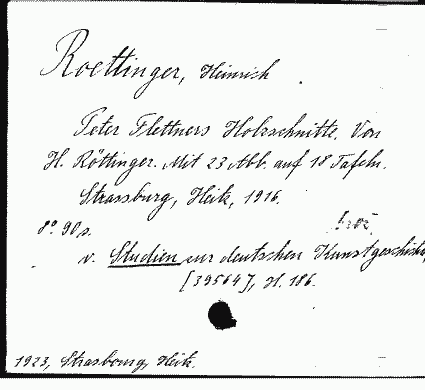 Roettinger, Heinrich
Peter Flettners Holzschnitte. Von
H. Röttinger. Mit 23 Abb. auf 18 Tafeln.
Strassburg, Heitz, 1916.
8° 90 s.
v. Studien zur deutschen Kunstgeschichte
[39564], H. 186.
1923, Strasbourg, Heitz.